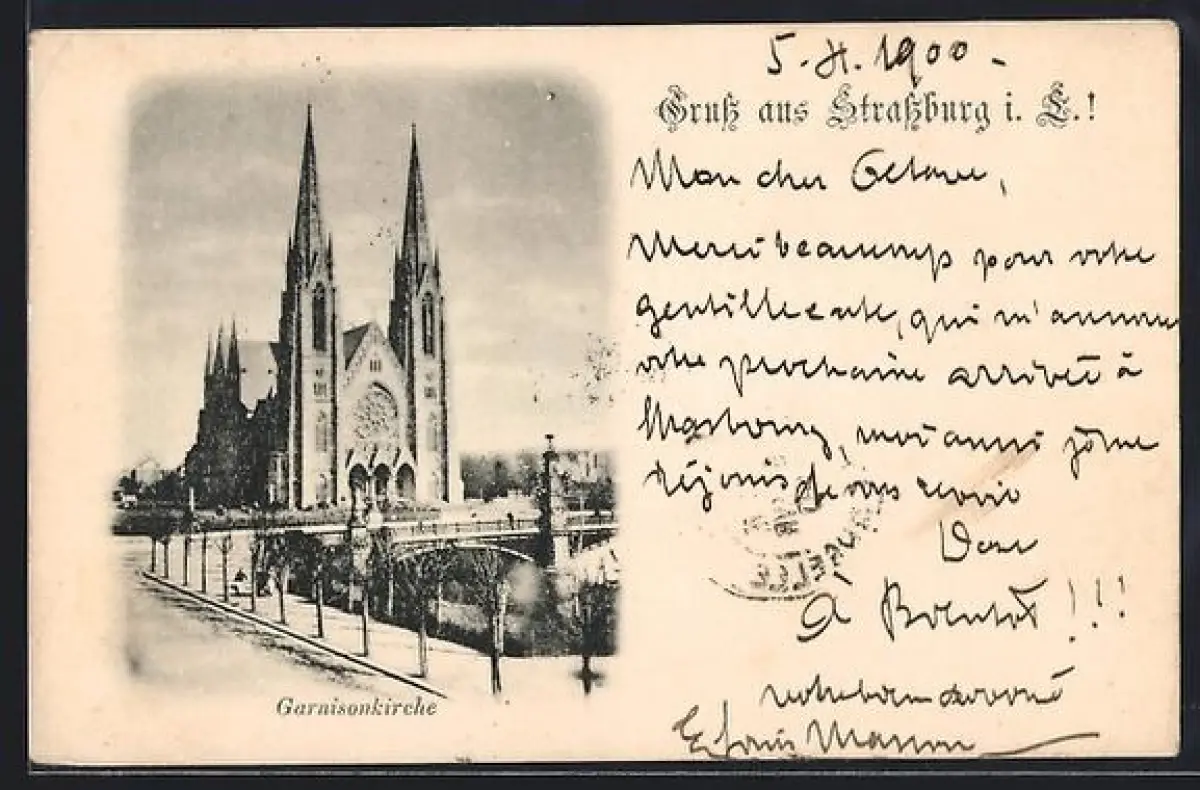 5. II. 1900 -
Gruß aus Straßburg i. E.!
Mon cher
Merci beaucoup pour votre
gentille carte, qui m'annonce
votre prochaine arrivée à
Strasbourg, moi aussi
réjouis de vous revoir
Donc
A Bientôt !!!
votre bien dévoué
Masson
Garnisonkirche